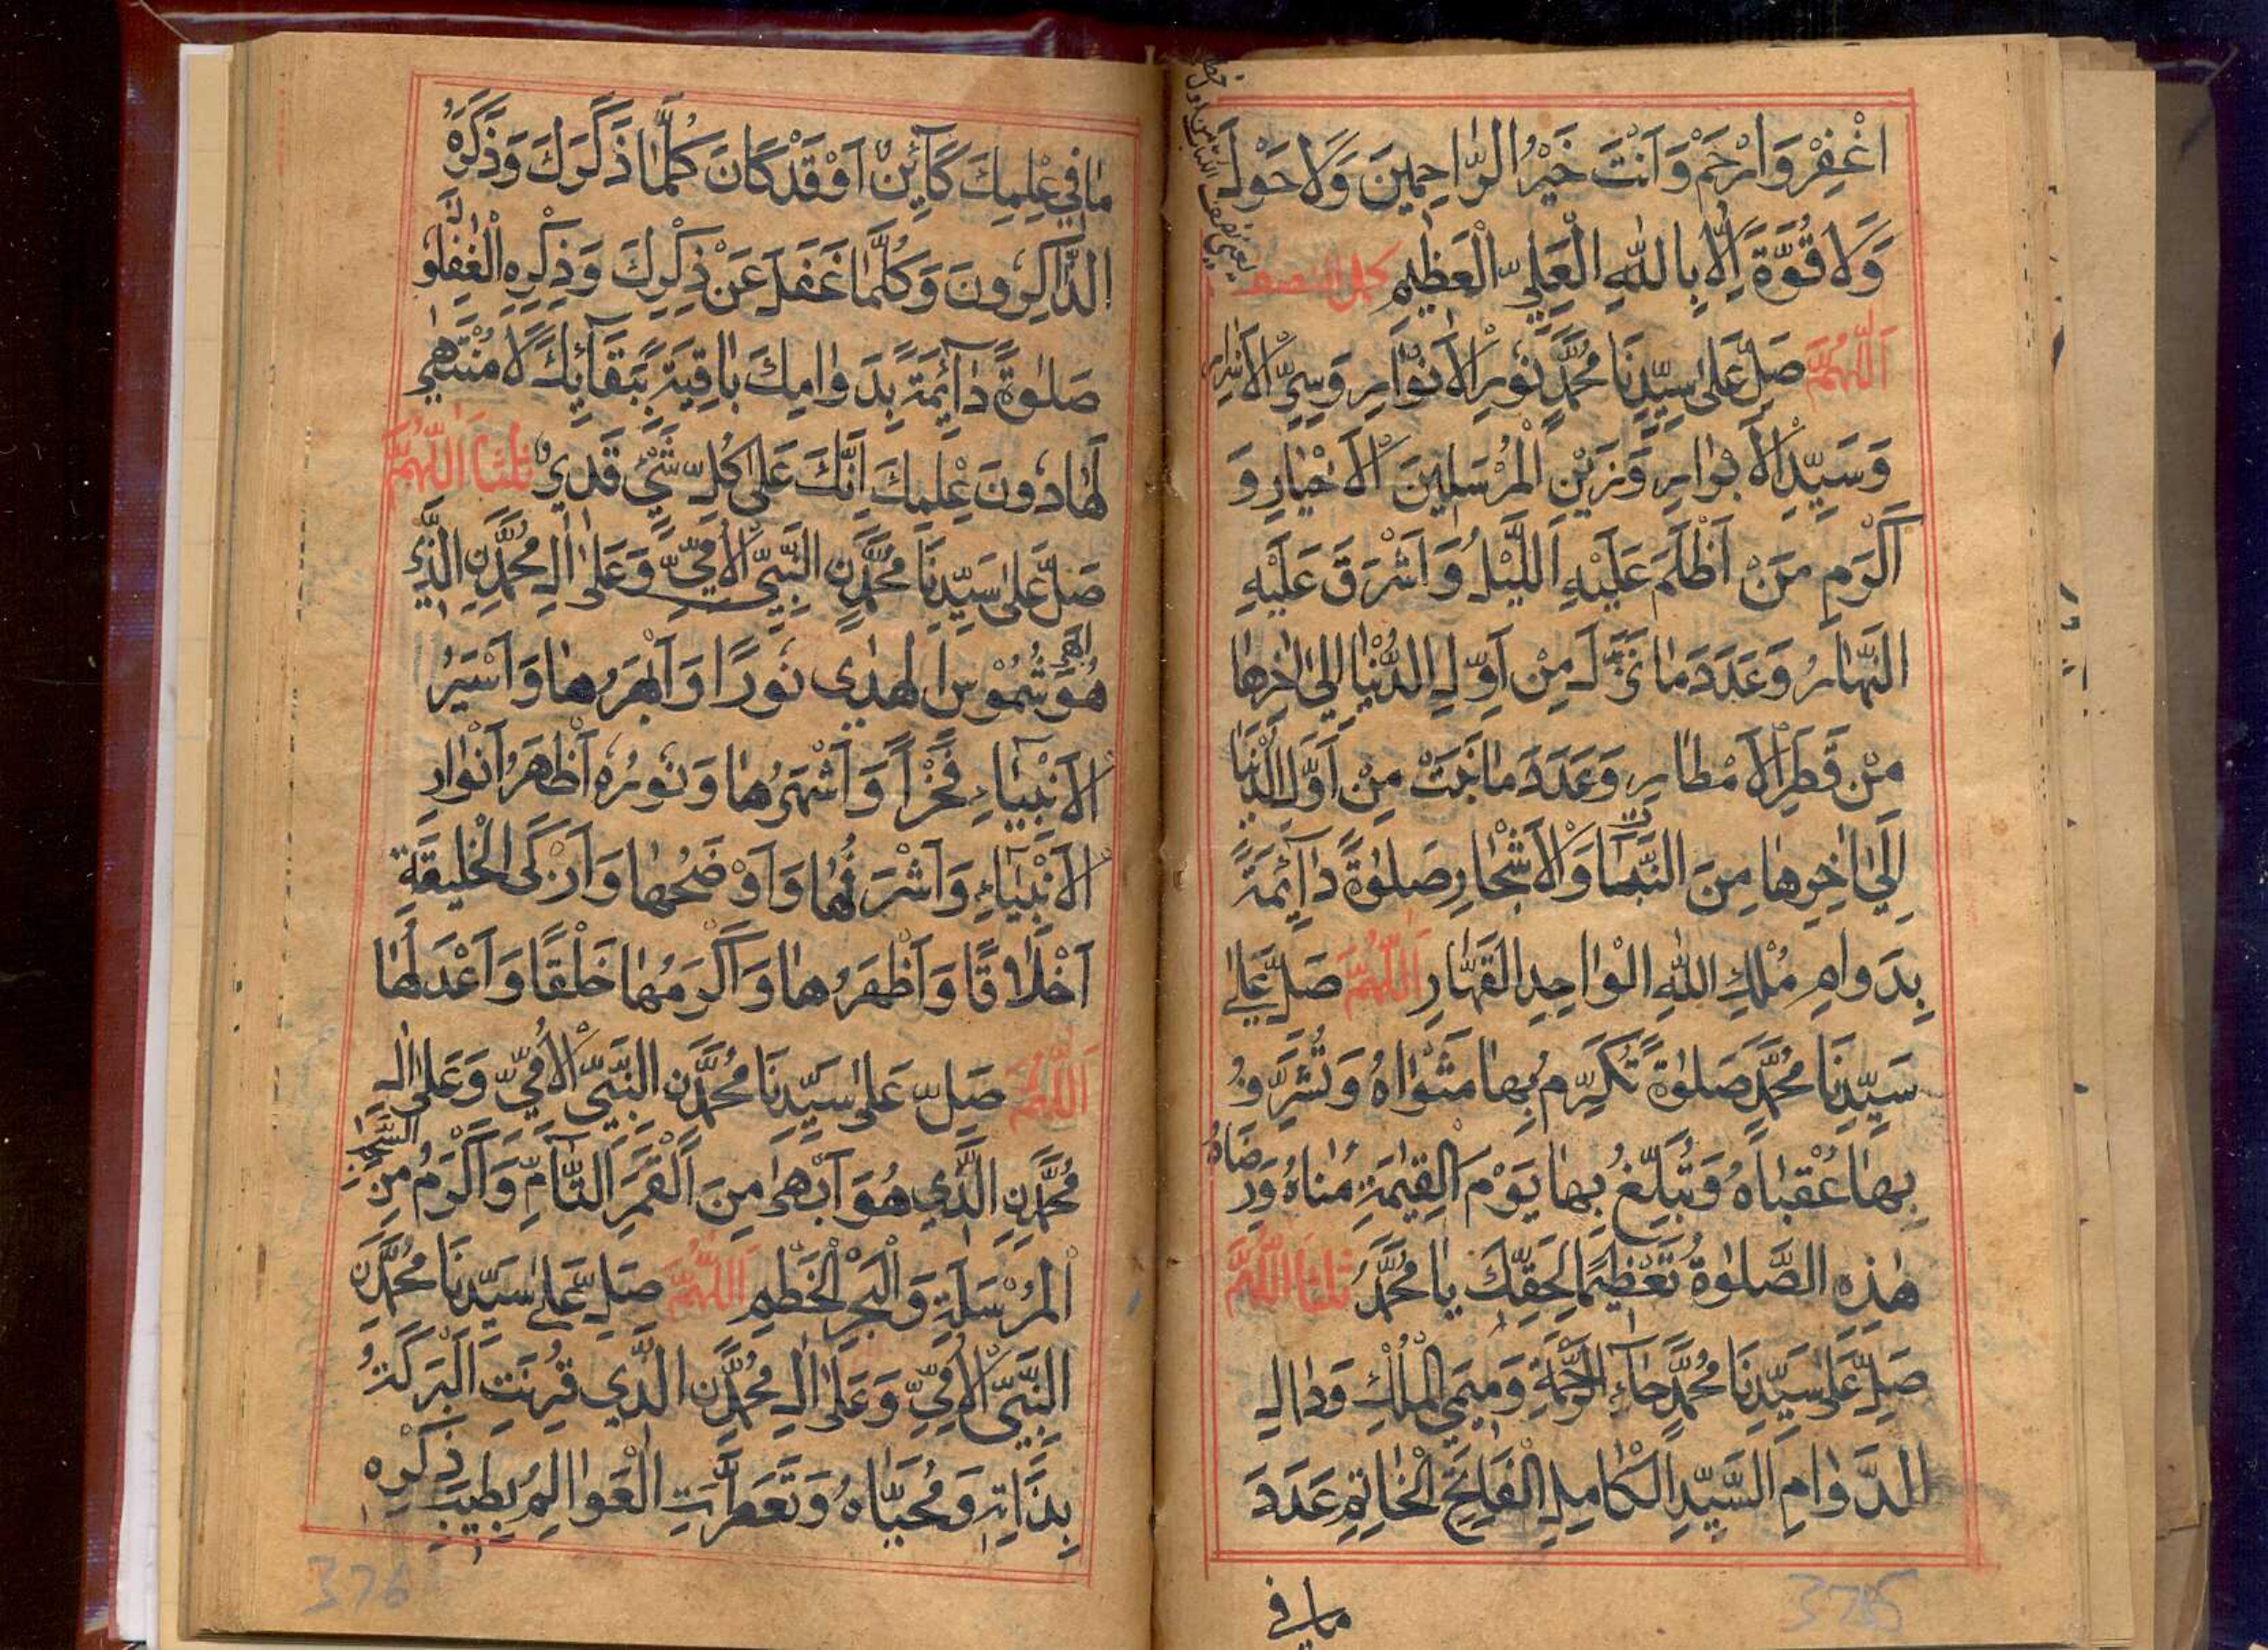 اغْفِرْ وَارْحَمْ وَاَنْتَ خَيْرُ الرّٰاحِمِينَ وَلَا حَوْلَ
وَلَا قُوَّةَ اِلَّا بِاللّٰهِ الْعَلِيِّ الْعَظِيْمِ كمل النصف
اَللّٰهُمَّ صَلِّ عَلىٰ سَيِّدِنَا مُحَمَّدٍ نُوْرِ الْاَنْوَارِ وَسِرِّ الْاَسْرَارِ
وَسَيِّدِ الْاَبْرَارِ وَزَيْنِ الْمُرْسَلِينَ الْاَخْيَارِ وَ
اَكْرَمِ مَنْ اَظْلَمَ عَلَيْهِ اللَّيْلُ وَاَشْرَقَ عَلَيْهِ
النَّهَارُ وَعَدَدَ مَا نَزَلَ مِنْ اَوَّلِ الدُّنْيَا اِلىٰ اٰخِرِهَا
مِنْ قَطْرِ الْاَمْطَارِ وَعَدَدَ مَا نَبَتَ مِنْ اَوَّلِ الدُّنْيَا
اِلىٰ اٰخِرِهَا مِنَ النَّبَاتِ وَالْاَشْجَارِ صَلٰوةً دَآئِمَةً
بِدَوَامِ مُلْكِ اللّٰهِ الْوَاحِدِ الْقَهَّارِ اَللّٰهُمَّ صَلِّ عَلىٰ
سَيِّدِنَا مُحَمَّدٍ صَلٰوةً تُكَرِّمُ بِهَا مَثْوَاهُ وَتُشَرِّفُ
بِهَا عُقْبَاهُ وَتُبَلِّغُ بِهَا يَوْمَ الْقِيٰمَةِ مُنَاهُ وَرِضَاهُ
هٰذِهِ الصَّلٰوةُ تَعْظِيْمًا لِحَقِّكَ يَا مُحَمَّدُ ثلثا اَللّٰهُمَّ
صَلِّ عَلىٰ سَيِّدِنَا مُحَمَّدٍ حَآءِ الرَّحْمَةِ وَمِيمَيِ الْمُلْكِ وَدَالِ
الدَّوَامِ السَّيِّدِ الْكَامِلِ الْفَاتِحِ الْخَاتِمِ عَدَدَ
ما في
مَا فِي عِلْمِكَ كَآئِنٌ اَوْ قَدْ كَانَ كُلَّمَا ذَكَرَكَ وَذَكَرَهُ
الذَّاكِرُونَ وَكُلَّمَا غَفَلَ عَنْ ذِكْرِكَ وَذِكْرِهِ الْغٰفِلُوْنَ
صَلٰوةً دَآئِمَةً بِدَوَامِكَ بَاقِيَةً بِبَقَآئِكَ لَا مُنْتَهٰى
لَهَا دُونَ عِلْمِكَ اِنَّكَ عَلىٰ كُلِّ شَيْءٍ قَدِيرٌ ثلثا اَللّٰهُمَّ
صَلِّ عَلىٰ سَيِّدِنَا مُحَمَّدِنِ النَّبِيِّ الْاُمِّيِّ وَعَلىٰ اٰلِ مُحَمَّدِنِ الَّذِي
هُوَ اَبْهٰى شُمُوْسِ الْهُدٰى نُورًا وَاَبْهَرُهَا وَاَسْيَرُ
الْاَنْبِيَآءِ فَخْرًا وَاَشْهَرُهَا وَنُورُهُ اَظْهَرُ اَنْوَارِ
الْاَنْبِيَآءِ وَاَشْرَفُهَا وَاَوْضَحُهَا وَاَزْكَى الْخَلِيقَةِ
اَخْلَاقًا وَاَظْهَرُهَا وَاَكْرَمُهَا خَلْقًا وَاَعْدَلُهَا
اَللّٰهُمَّ صَلِّ عَلىٰ سَيِّدِنَا مُحَمَّدِنِ النَّبِيِّ الْاُمِّيِّ وَعَلىٰ اٰلِ
مُحَمَّدِنِ الَّذِي هُوَ اَبْهٰى مِنَ الْقَمَرِ التَّآمِّ وَاَكْرَمُ مِنَ السَّحَابِ
الْمُرْسَلَةِ وَالْبَحْرِ الْخَطِيْمِ اَللّٰهُمَّ صَلِّ عَلىٰ سَيِّدِنَا مُحَمَّدِنِ
النَّبِيِّ الْاُمِّيِّ وَعَلىٰ اٰلِ مُحَمَّدِنِ الَّذِي قُرِنَتِ الْبَرَكَةُ
بِذَاتِهِ وَمُحَيَّاهُ وَتَعَطَّرَتِ الْعَوَالِمُ بِطِيبِ ذِكْرِهِ
376